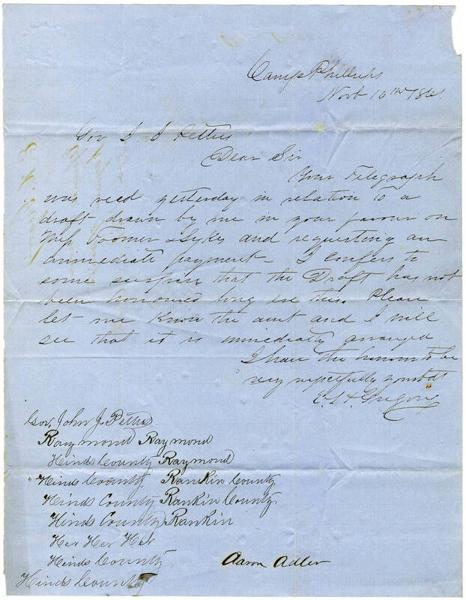 Camp Phillips
Novb 16th 1861
Gov J J Pettus
Dear Sir
Your Telegraph
was recd yesterday in relation to a
draft drawn by me in your favour on
and requesting an
immediate payment - I confess to
some surprise that the Draft has not
been honoured long ere this. Please
let me know the amt and I will
see that it is immediately arranged
I have the honour to be
very respectfully your obt
Gov. John J. Pettus
Raymond Raymond
Hinds County Raymond
Hinds County Rankin County
Hinds County Rankin County.
Hinds County Rankin
Her Her Her
Hinds County Aaron Adler
Hinds County